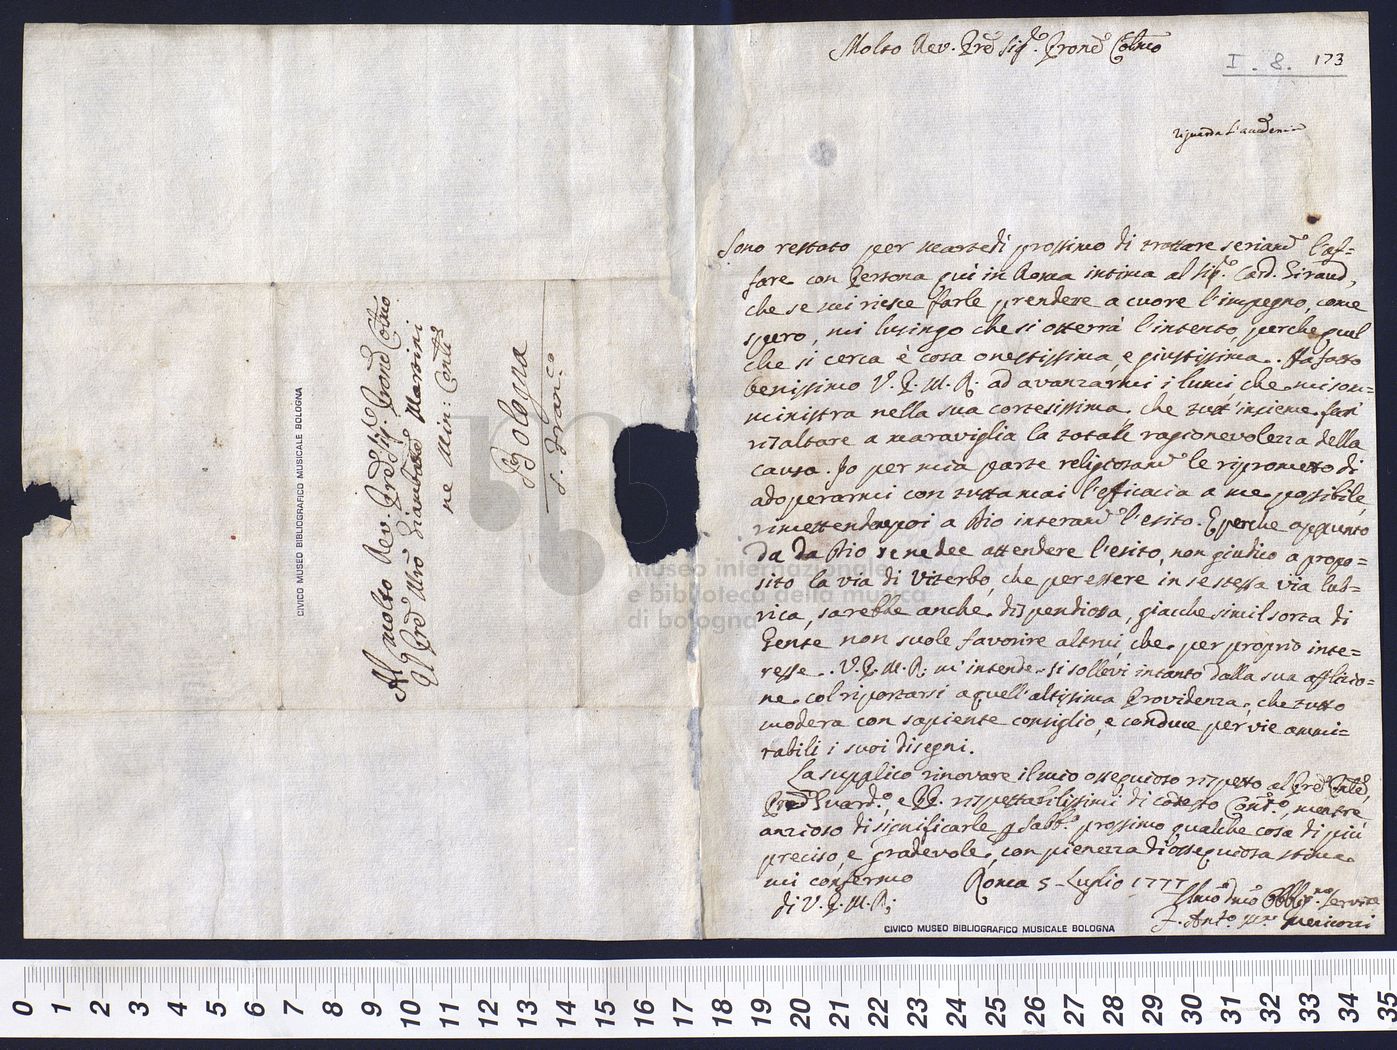 Al molto Rev. Pred Sig. Prone Colmo
Il Pred Mro Giambatta Martini
ne Min: Contli
Bologna
S. Franc.o
CIVICO MUSEO BIBLIOGRAFICO MUSICALE BOLOGNA
Molto Rev. Pred Sig.e Prone Colmo
I. 8. 173
riguarda l'accademia
Sono restato per Martedì prossimo di trattare seriamte l'af=
fare con Persona quì in Roma intima al Sig.e Card. Giraud,
che se mi riesce farle prendere a cuore l'impegno, come
spero, mi lusingo che si otterrà l'intento, perche quel
che si cerca è cosa onestissima, e giustissima. Ha fatto
benissimo V. P. M. R. ad avanzarmi i lumi che mi som=
ministra nella sua cortesissima, che tutt'insieme fan
risaltare a maraviglia la totale ragionevolezza della
causa. Io per mia parte religiosamte le riprometto di
adoperarmi con tutta mai l'efficacia a me possibile,
rimettendo poi a Dio interamte l'esito. E perche appunto
da Dio se ne dee attendere l'esito, non giudico a propo=
sito la via di Viterbo, che per essere in se stessa via lub=
rica, sarebbe anche dispendiosa, giacche simil sorta di
Gente non suole favorire altrui che per proprio inte=
resse. V. P. M. R. m'intende. Si sollevi intanto dalla sua afflizio=
ne col riportarsi a quell'altissima Providenza, che tutto
modera con sapiente consiglio, e conduce per vie ammi=
rabili i suoi disegni.
La supplico rinovare il mio ossequioso rispetto al Pred
Pred Guard.o, e PP. rispettabilissimi di codesto Conto, mentre
anzioso di significarle p Sabb.o prossimo qualche cosa di più
preciso, e gradevole, con pienezza di ossequiosa stima
mi confermo Roma 5 Luglio 1777
di V. P. M. R;
Umo Dmo Obblig.mo Servitre
F. Ant.o
CIVICO MUSEO BIBLIOGRAFICO MUSICALE BOLOGNA
museo internazionale
e biblioteca della musica
di bologna
0 1 2 3 4 5 6 7 8 9 10 11 12 13 14 15 16 17 18 19 20 21 22 23 24 25 26 27 28 29 30 31 32 33 34 35